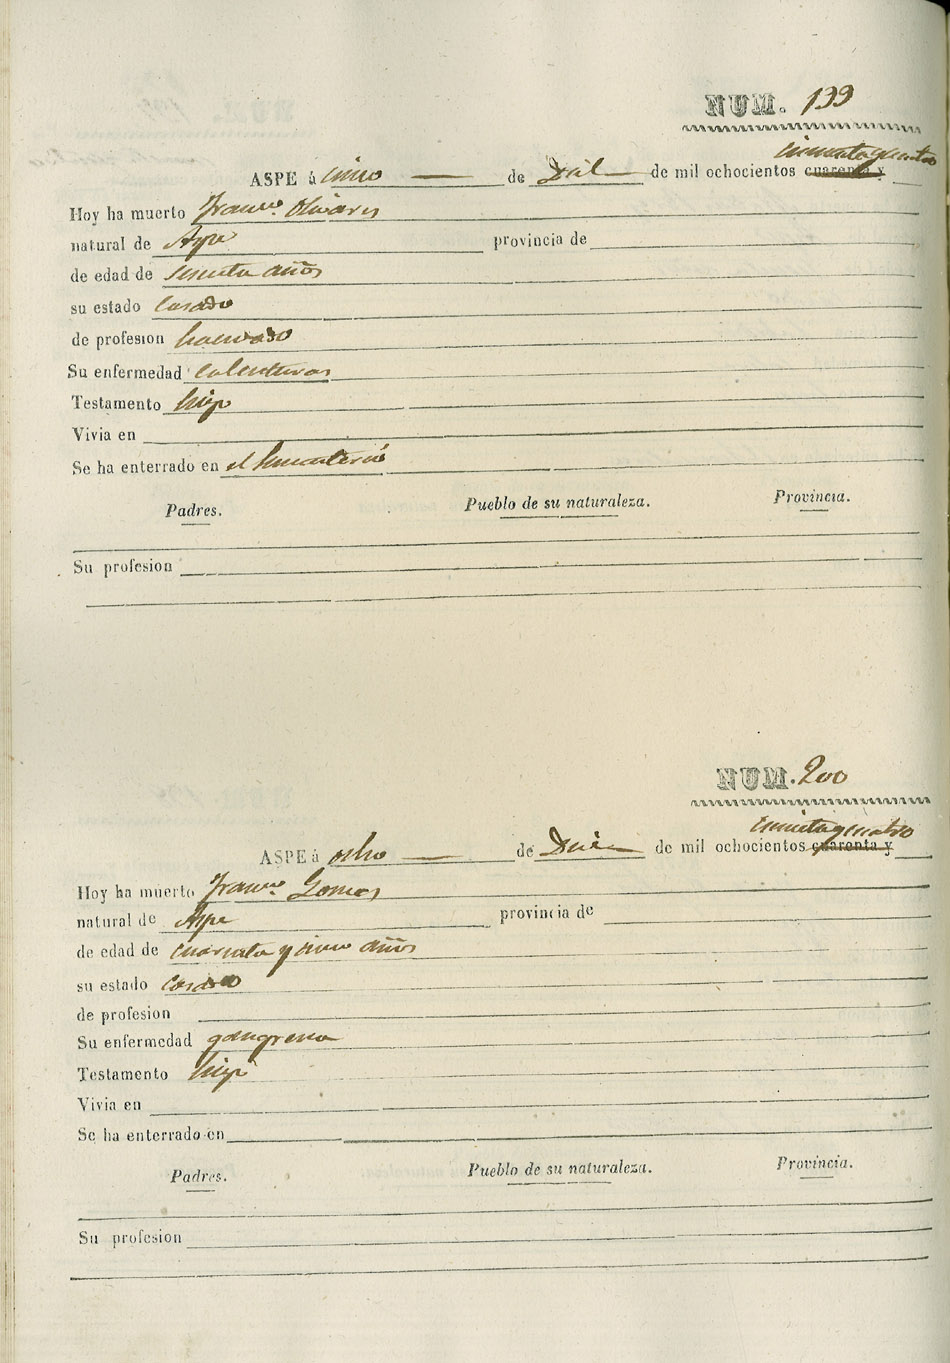 NUM. 199
cincuenta y cuatro
ASPE á cinco de de mil ochocientos cuarenta y
Hoy ha muerto Franco. Olivares
natural de Aspe provincia de
de edad de sesenta años
su estado Casado
de profesion hacendado
Su enfermedad calenturas
Testamento hizo
Vivia en
Se ha enterrado en el Sementerio
Padres. Pueblo de su naturaleza. Provincia.
Su profesion
NUM. 200
cincuenta y cuatro
ASPE á ocho de de mil ochocientos cuarenta y
Hoy ha muerto Franco. Gomes
natural de Aspe provincia de
de edad de cuarenta y cinco años
su estado Casado
de profesion
Su enfermedad gangrena
Testamento hizo
Vivia en
Se ha enterrado en
Padres. Pueblo de su naturaleza. Provincia.
Su profesion